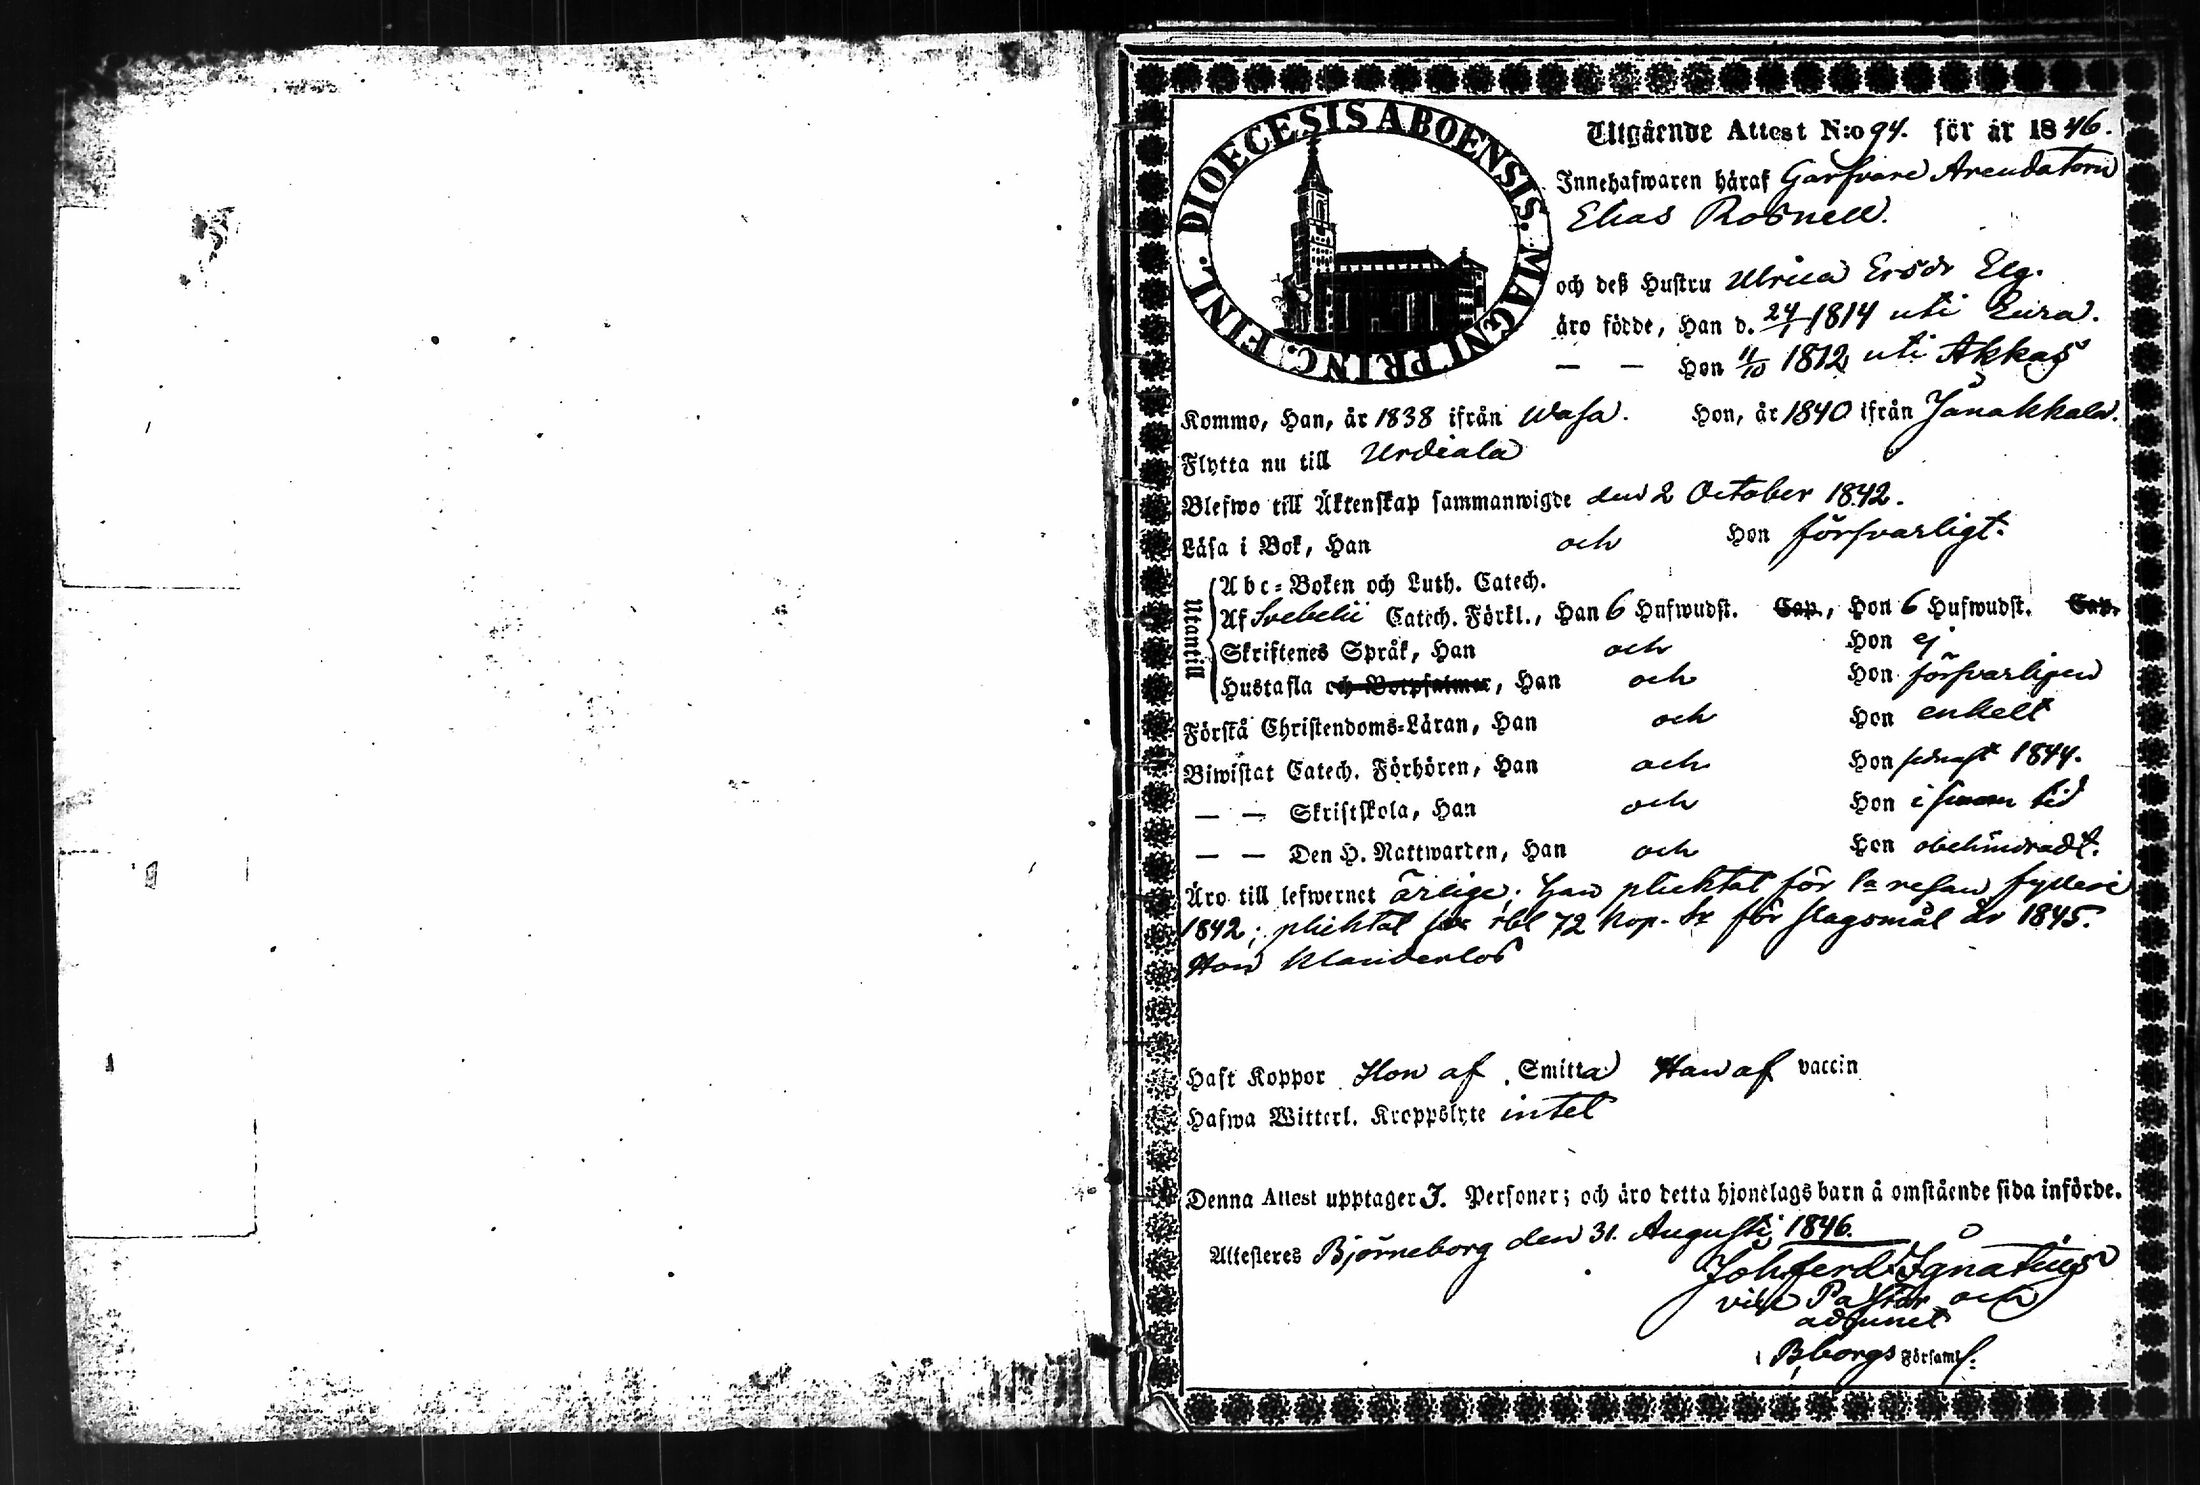 DIOECESIS ABOENSIS. MAGNI PRINC. FINL.
Utgående Attest N:o 94. för år 1846.
Innehafwaren häraf Garfvare Arendatorn
Elias Rosnell.
och deß Hustru Ulrica Ersdr Elg.
äro födde, Han d. 24/1 1814 uti Eura.
— — Hon 11/10 1812 uti Akkas
Komme, Han, år 1838 ifrån Wasa. Hon, år 1840 ifrån Janakkala.
Flytta nu till Urdiala
Blefwo till Äktenskap sammanwigde den 2 October 1842.
Läsa i Bok, Han och Hon försvarligt.
Utantill
Abc-Boken och Luth. Catech.
Af Svebelii Catech. Förkl., Han 6 Hufwudst. Cap., Hon 6 Hufwudst. Cap.
Skriftenes Språk, Han och Hon ej
Hustafla och Botpsalmer, Han och Hon försvarligen
Förstå Christendoms-Läran, Han och Hon enkelt
Biwistat Catech. Förhören, Han och Hon sednast 1844.
— — Skriftskola, Han och Hon i sinom tid
— — Den H. Nattwarden, Han och Hon obehindradt.
Äro till lefwernet ärlige; han pliktat för 1a resan fylleri
1842; pliktat rbl 72 kop. Sr för slagsmål år 1845.
Hon klanderlös
Haft Koppor Hon af Smitta Han af vaccin
Hafwa Witterl. Kroppslyte intet
Denna Attest upptager 3. Personer; och äro detta hjonelags barn å omstående sida införde.
Attesteres Björneborg den 31. Augusti 1846.
Joh. Ferd. Ignatius
vice Pastor och
adjunct
i B:borgs Församl: